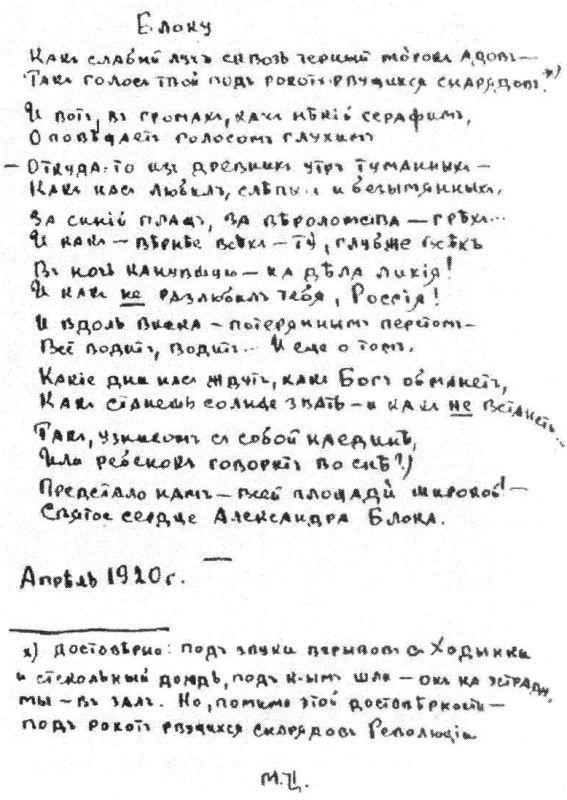 Блоку
Какъ слабый лучъ сквозь черный морокъ адовъ —
Такъ голосъ твой подъ рокотъ рвущихся снарядовъ. х)
И вотъ, въ громахъ, какъ нѣкій серафимъ,
Оповѣщаетъ голосомъ глухимъ
— Откуда-то изъ древнихъ утръ туманныхъ —
Какъ насъ любилъ, слѣпыхъ и безымянныхъ,
За синій плащъ, за вѣроломства — грѣхъ...
И какъ — вѣрнѣе всѣхъ — ту, глубже всѣхъ
Въ ночь канувшую — на дѣла лихія!
И какъ не разлюбилъ тебя, Россія!
И вдоль виска — потеряннымъ перстомъ —
Всё водитъ, водитъ... И еще о томъ,
Какіе дни насъ ждутъ, какъ Богъ обманетъ,
Какъ станешь солнце звать — и какъ не встанетъ...
Такъ, узникомъ съ собой наединѣ,
(Или ребенокъ говоритъ во снѣ?)
Предстало намъ — всей площади широкой! —
Святое сердце Александра Блока.
Апрѣль 1920 г.
х) достовѣрно: подъ звуки взрывовъ съ Ходынки
и стекольный дождь, подъ к-ымъ шли — онъ на эстраду,
мы — въ залъ. Но, помимо этой достовѣрности —
подъ рокотъ рвущихся снарядовъ Революціи.
М.Ц.